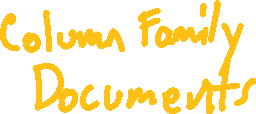 Column Family
Documents